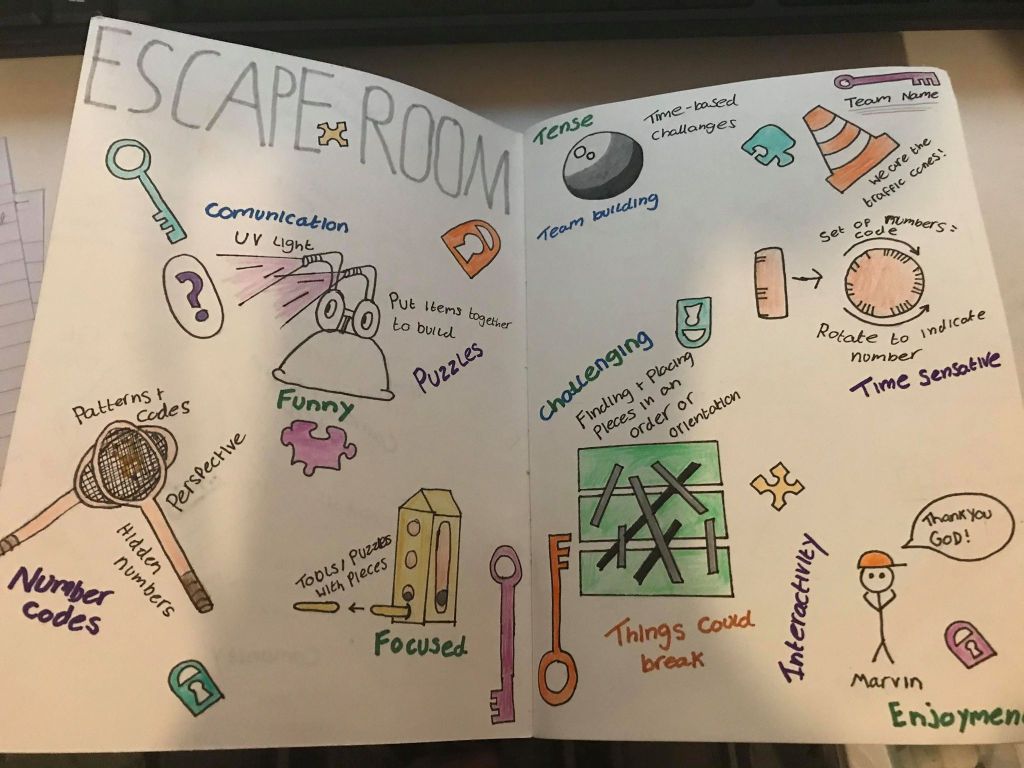 ESCAPE ROOM
Comunication
UV Light
?
Put items together
to build
Puzzles
Funny
Patterns +
Codes
Perspective
Hidden
numbers
Number
codes
Tools / Puzzles
with Pieces
Focused
Tense
Time-based
Challanges
Team building
Team Name
We are the
traffic cones!
Set of numbers:
code
Rotate to indicate
number
Time Sensative
Challenging
Finding + Placing
Pieces in an
order or
orientation
Things could
break
Interactivity
Thank you
GOD!
Marvin
Enjoymen